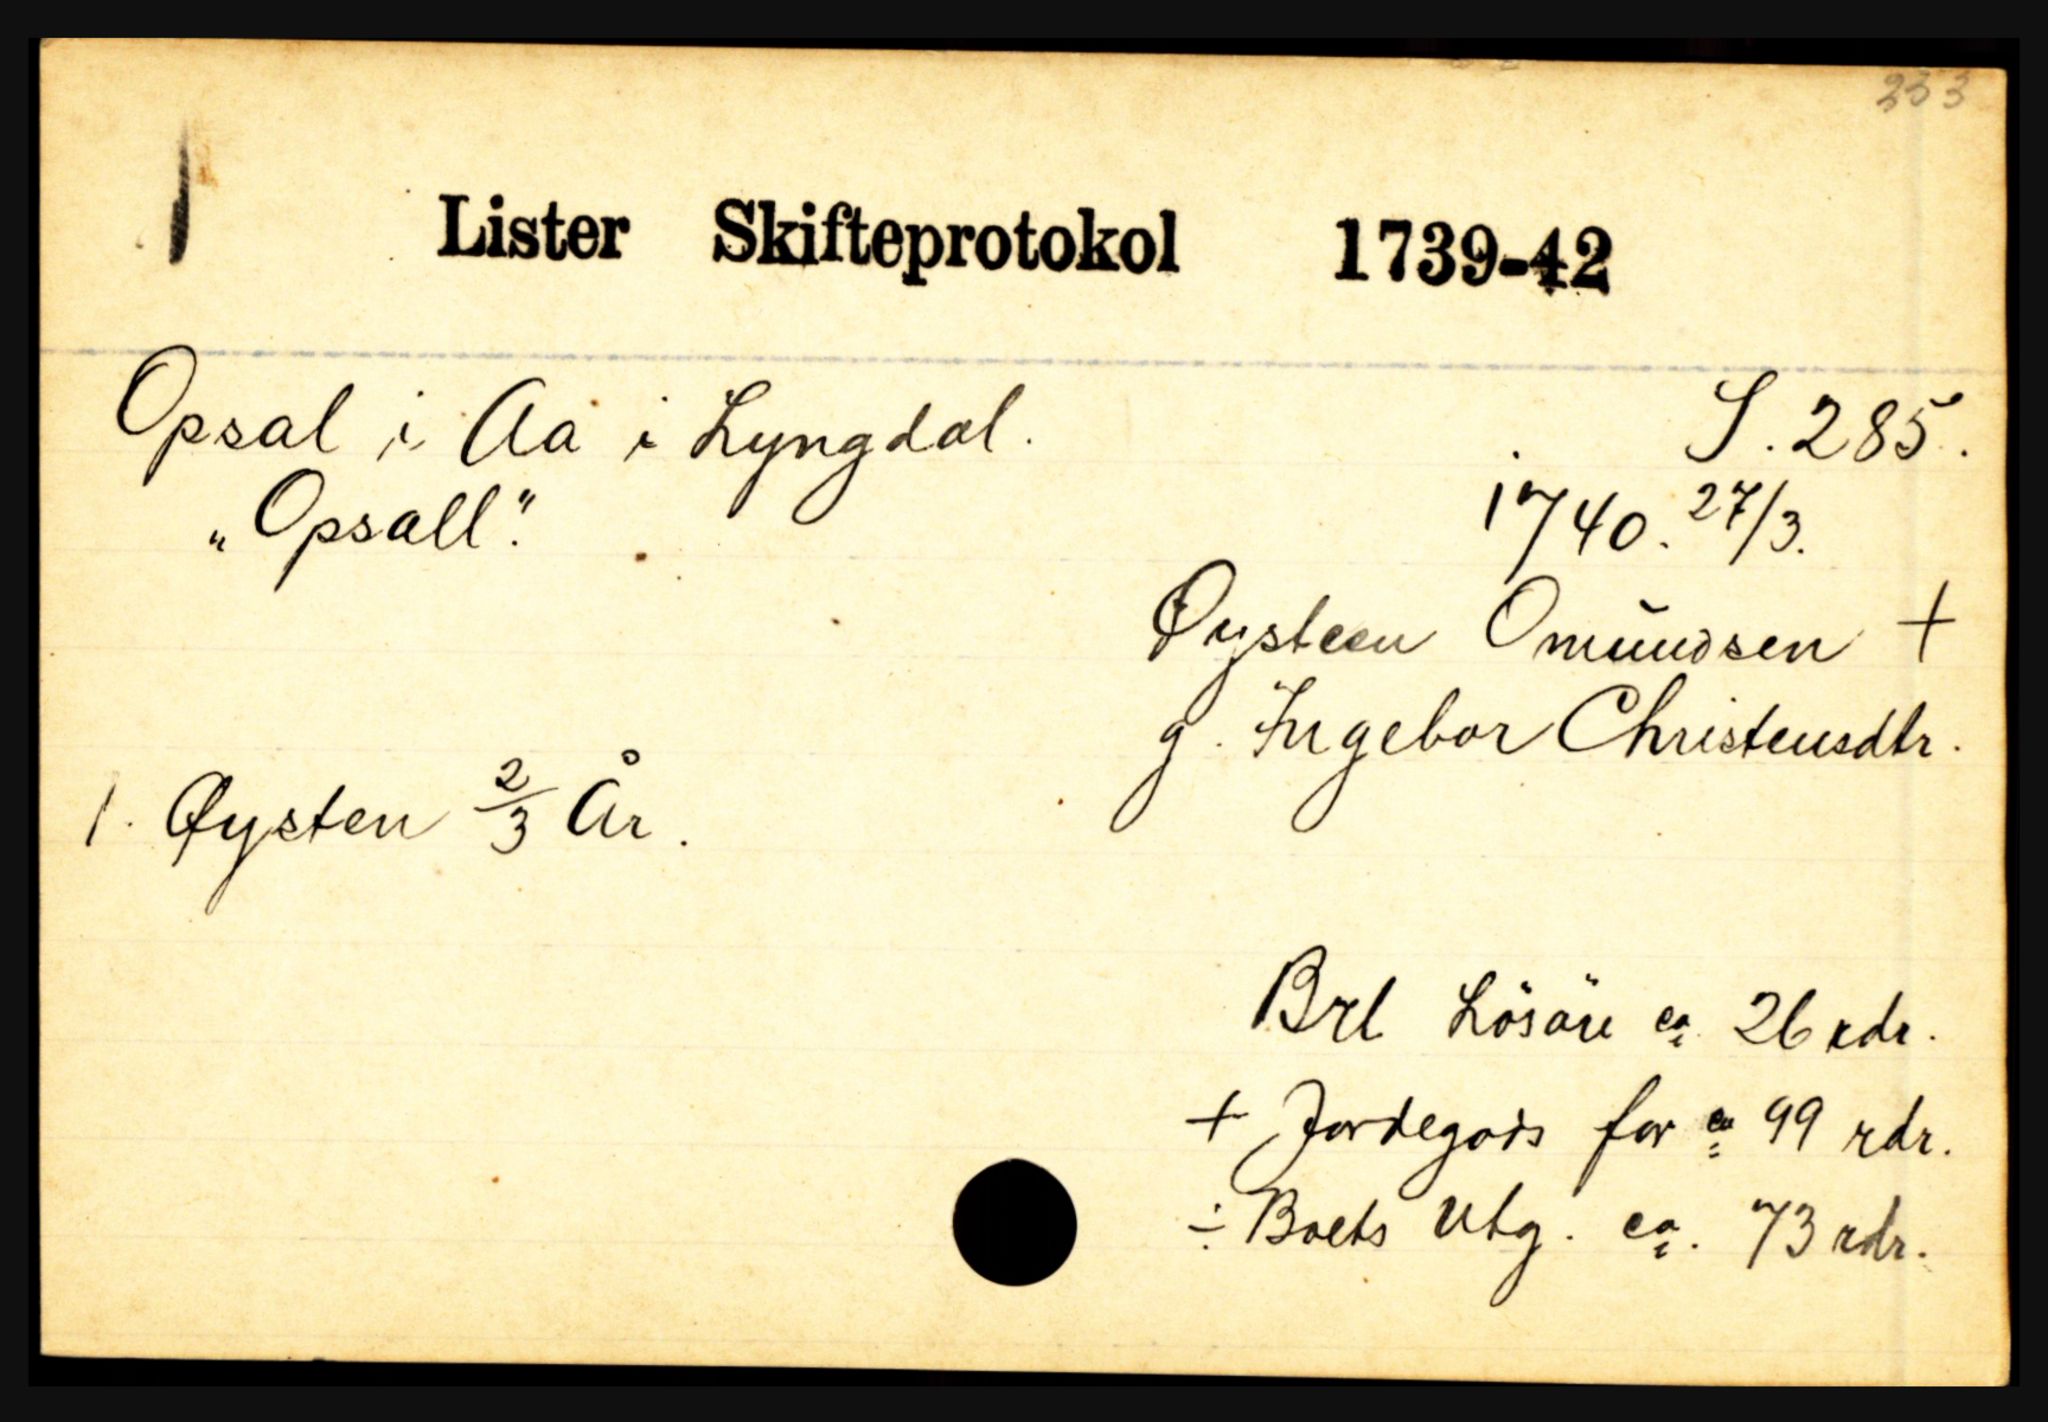 233
Lister Skifteprotokol 1739-42
Opsal i Aa i Lyngdal. S. 285.
„Opsall“. 1740. 27/3.
Øysteen Omŭndsen +
g. Ingebor Christensdtr.
1. Øysten 2/3 År.
Brt Lösöre ca 26 rdr.
+ Jordegods for ca 99 rdr.
÷ Boets Utg. ca. 73 rdr.